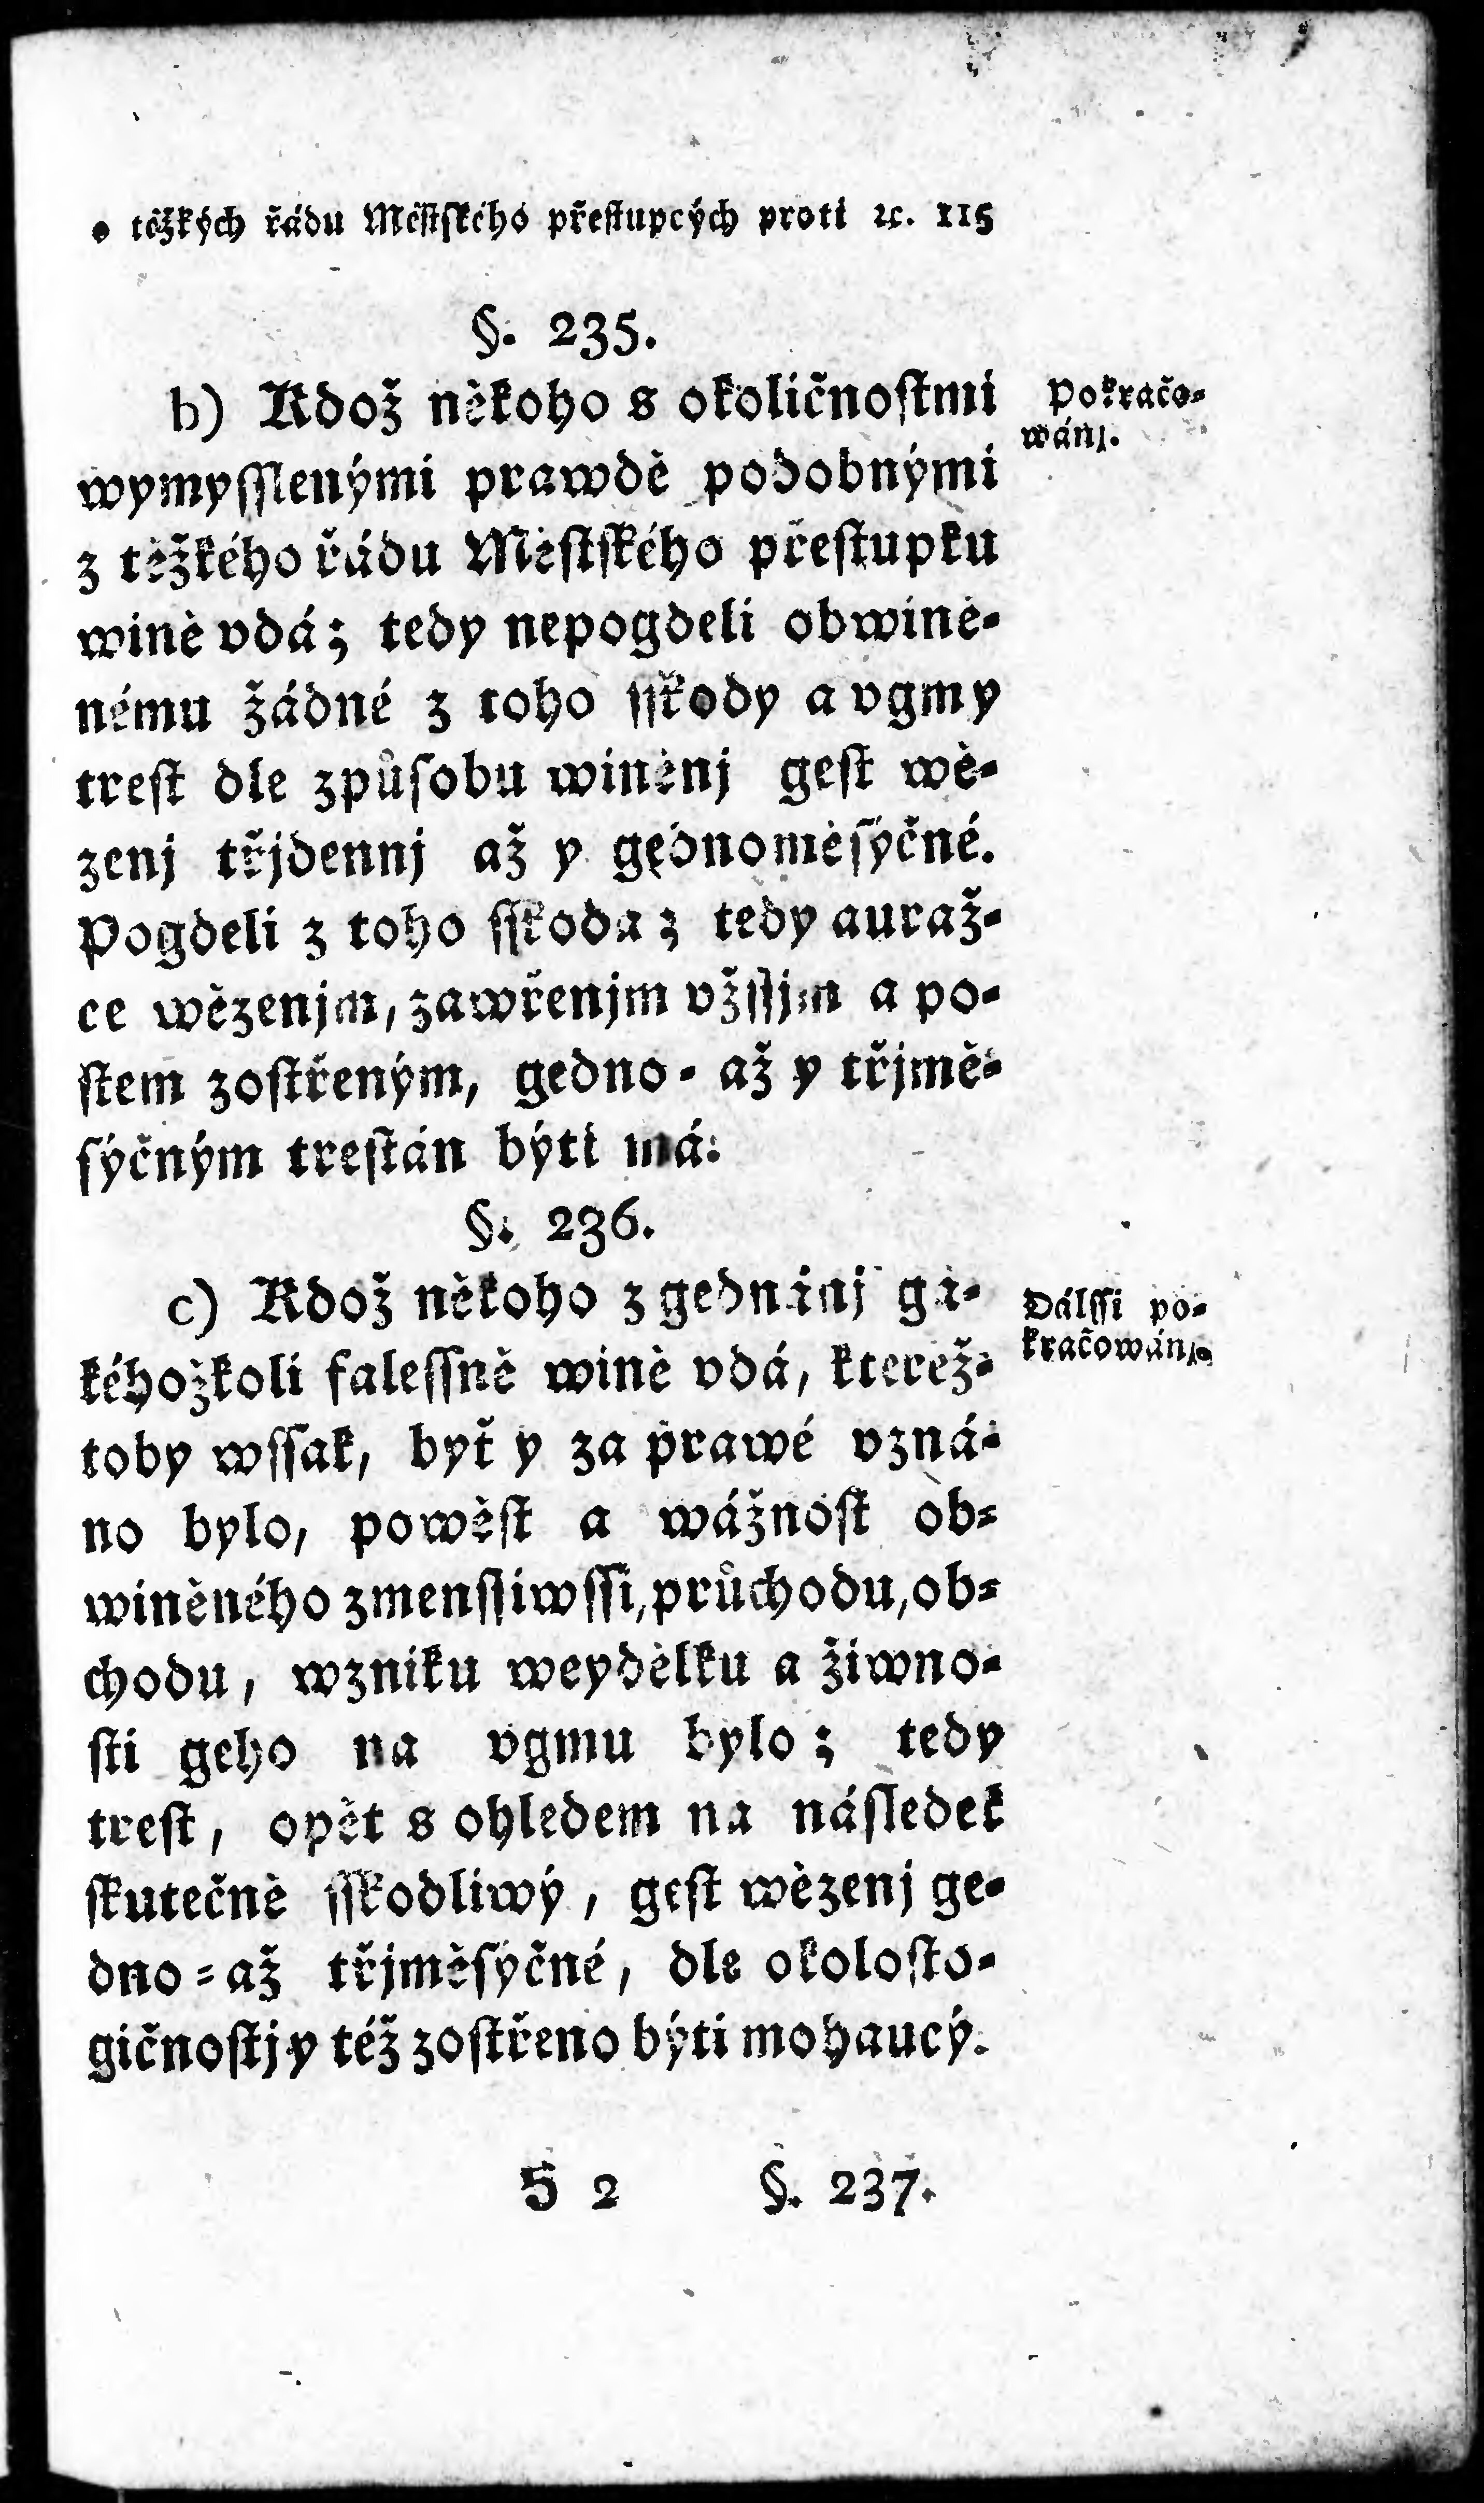 o těžkých řádu Měſtſkého přeſtupcých proti ꝛc. 115
§. 235.
b) Kdož někoho s okoličnoſtmi
wymyſſlenými prawdě podobnými
z těžkého řádu Měſtſkého přeſtupku
wině vdá; tedy nepogdeli obwině-
nému žádné z toho ſſkody a vgmy
treſt dle způſobu winěnj geſt wě-
zenj třjdennj až y gednoměſyčné.
Pogdeli z toho ſſkoda; tedy auraž-
ce wězenjm, zawřenjm vžſſjm a po-
ſtem zoſtřeným, gedno- až y třjmě-
ſýčným treſtán býti má:
Pokračo-
wánj.
§. 236.
c) Kdož někoho z gednánj ga-
kéhožkoli faleſſně wině vdá, kterěž-
toby wſſak, byť y za prawé vzná-
no bylo, powěſt a wážnoſt ob-
winěného zmenſſiwſſi, průchodu, ob-
chodu, wzniku weydělku a žiwno-
ſti geho na vgmu bylo; tedy
treſt, opět s ohledem na náſledek
ſkutečně ſſkodliwý, geſt wězenj ge-
dno-až třjměſyčné, dle okoloſto-
gičnoſtj y též zoſtřeno býti mohaucý.
Dálſſi po-
kračowánj.
H 2 §. 237.